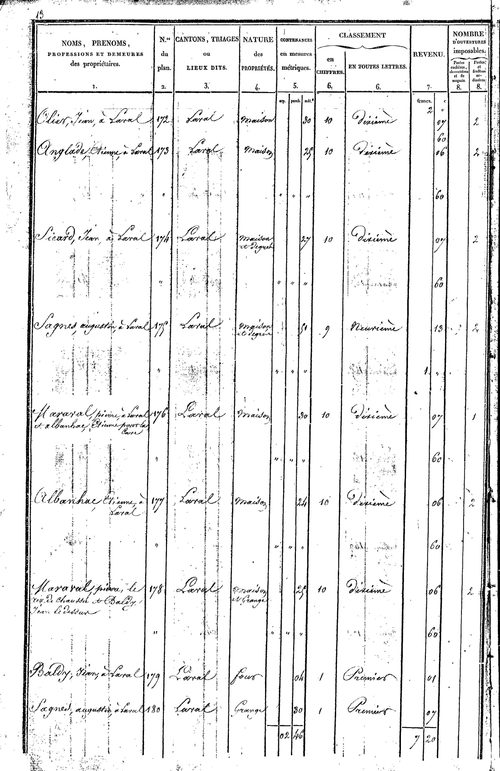 13
NOMS, PRENOMS, PROFESSIONS ET DEMEURES des propriétaires. 1.
N.os du plan. 2.
CANTONS, TRIAGES ou LIEUX DITS. 3.
NATURE des PROPRIÉTÉS. 4.
CONTENANCES en mesures métriques. 5.
CLASSEMENT
en CHIFFRES. 6.
EN TOUTES LETTRES. 6.
REVENU. 7.
NOMBRE D'OUVERTURES imposables. 8. 8.
francs. c
2 "
Olier, Jean, à Laval 172 Laval Maison 30 10 Dixième 07 2
60
Anglade, Etienne, à Laval 173 Laval Maison 25 10 Dixième 06 2
" " " " 60
Sicard, Jean, à Laval 174 Laval Maison 27 10 Dixième 07 2
" " " " 60
Sagnes, augustin, à Laval 175 Laval Maison 51 9 Neuvième 13 2
" " " " 1. "
Maraval, pierre, à Laval 176 Laval Maison 30 10 Dixième 07 1
et albanhac, Etienne pour la
cave
" " " " 60
Albanhac, Etienne, à 177 Laval Maison 24 10 Dixième 06 2
Laval
" " " " 60
Maraval, pierre, le 178 Laval Maison 25 10 Dixième 06 2
rez de chaussée et Baldy, et Grange
Jean le dessus
" " " " 60
Baldy, Jean, à Laval 179 Laval four 04 1 Premier 01
Sagnes, augustin, à Laval 180 Laval Grange 30 1 Premier 07
02 46 7 20